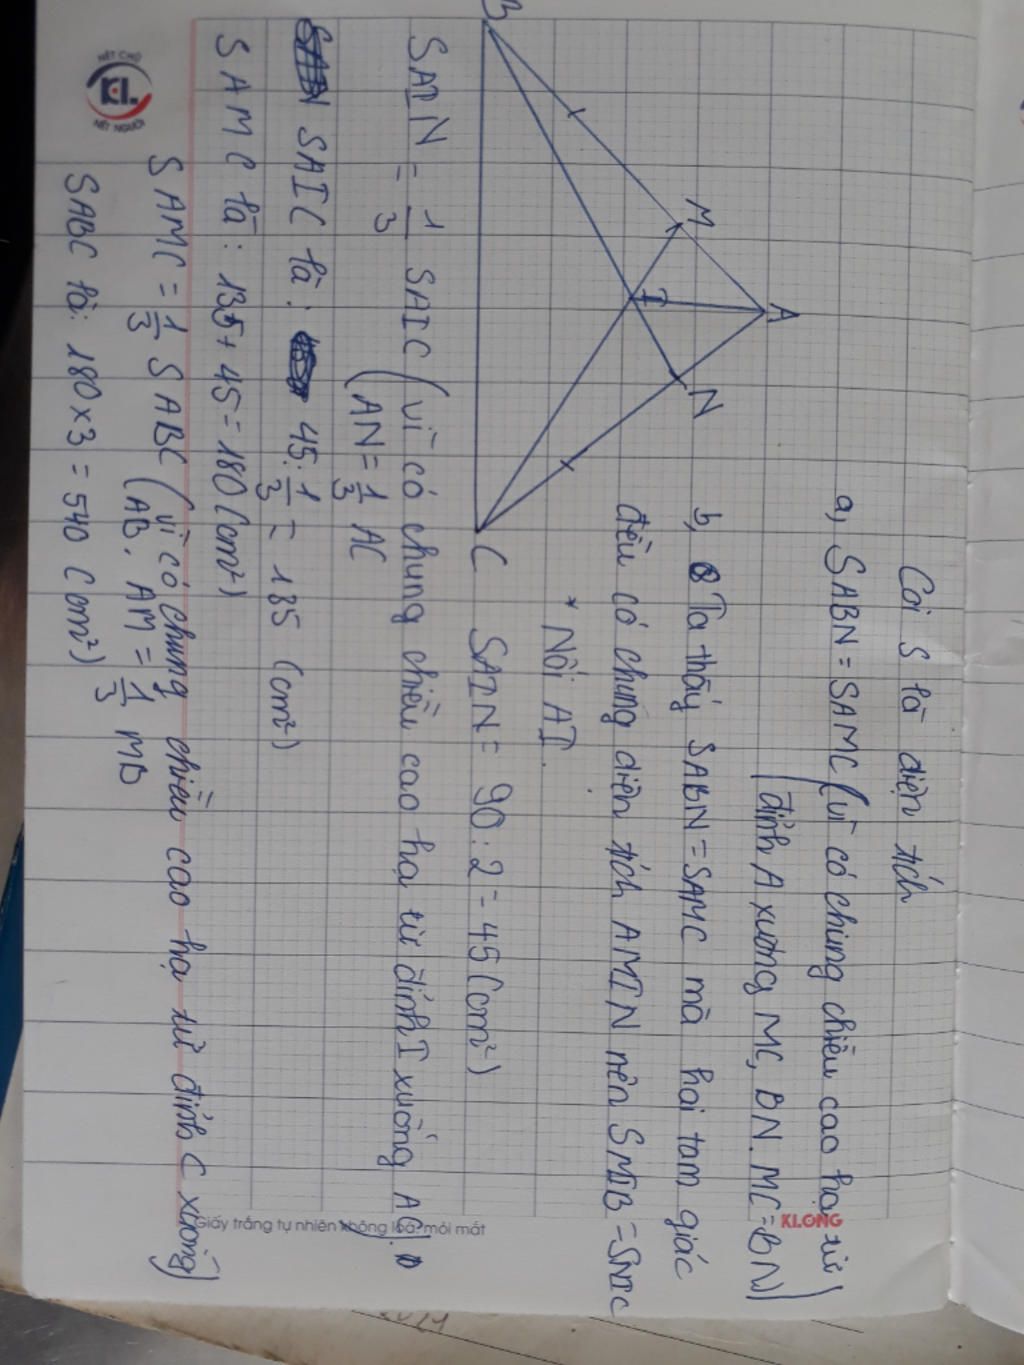 Coi S là diện tích
a, SABN = SAMC (vì có chung chiều cao hạ từ
đỉnh A xuống MC, BN. MC = BN)
b, Ta thấy SABN = SAMC mà hai tam giác
đều có chung diện tích AMIN nên SMIB = SNIC
* Nối AI.
B
M
A
I
N
C
SAIN = 90 : 2 = 45 (cm²)
SAIN = 1/3 SAIC (vì có chung chiều cao hạ từ đỉnh I xuống AC.
(AN = 1/3 AC
SAIC là: 45 : 1/3 = 135 (cm²)
SAMC là: 135 + 45 = 180 (cm²)
SAMC = 1/3 SABC (vì có chung chiều cao hạ từ đỉnh C xuống)
(AB. AM = 1/3 MB
SABC là: 180 x 3 = 540 (cm²)
KLONG
Giấy trắng tự nhiên không loá, mỏi mắt
NÉT CHỮ
KL.
NẾT NGƯỜI